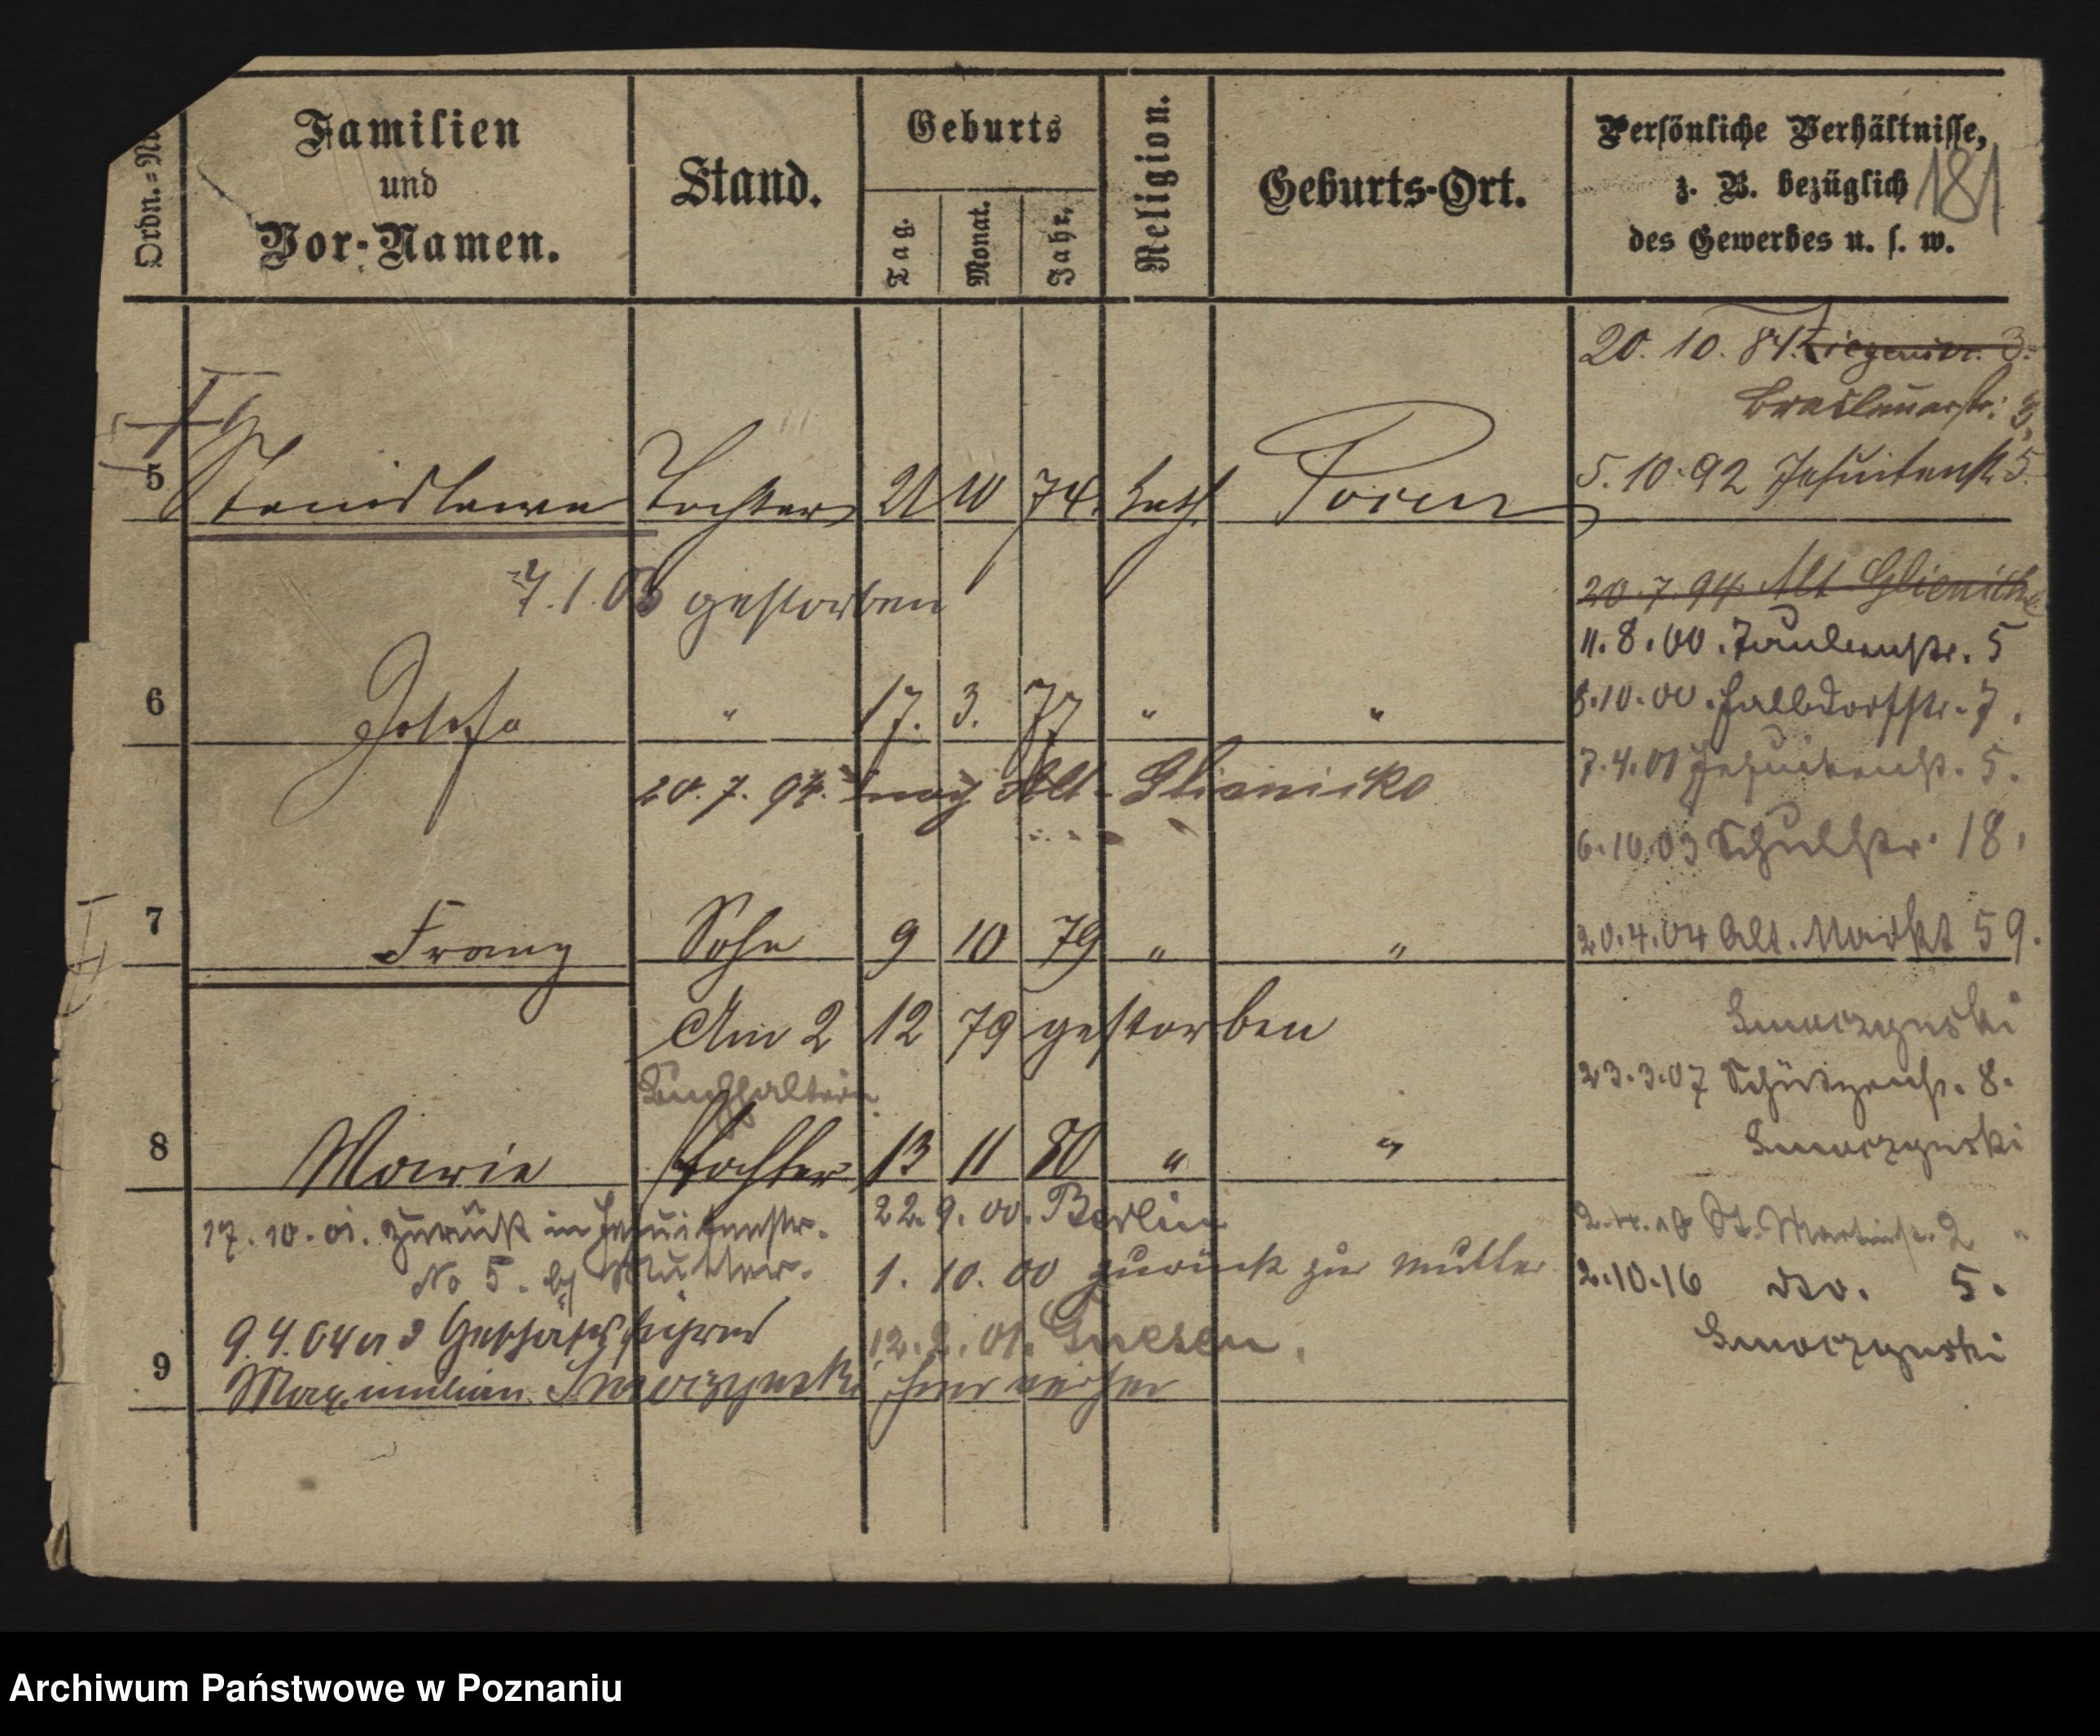 Ordn.=N
Familien
und
Vor-Namen.
Stand.
Geburts
Tag.
Monat.
Jahr.
Religion.
Geburts-Ort.
Persönliche Verhältnisse,
z. B. bezüglich
des Gewerbes u. s. w.
181
20. 10. 84 3.
Breslauerstr. 3,
5 Stanislawa Tochter 21 10 74. kath. Posen
5. 10. 92 Jesuitenstr. 5.
7. 1. gestorben
20. 7. 94. Alt Glienicke
11. 8. 00. Taubenstr. 5
6 Josefa " 17. 3. 77 " "
8. 10. 00. Halbdorfstr. 7.
20. 7. 94. nach Alt-Glienicke
7. 4. 01 Jesuitenstr. 5.
6. 10. 03 Schulstr. 18.
7 Franz Sohn 9 10 79 " "
20. 4. 04 Alt. Markt 59.
Am 2 12 79 gestorben
Smorzynski
Buchhalterin
23. 3. 07 Schützenstr. 8.
8 Marie Tochter 13 11 80 " "
Smorzynski
17. 10. 01. zurück in Jesuitenstr.
No 5. Mutter.
22. 9. 00. Berlin
St. Martinstr. 2
1. 10. 00 zurück zur Mutter
2. 10. 16 do. 5.
9. 4. 04 Geschäftsführer
12. 2. 01. Gnesen.
Smorzynski
9 Maximilian Smorzynski
Archiwum Państwowe w Poznaniu